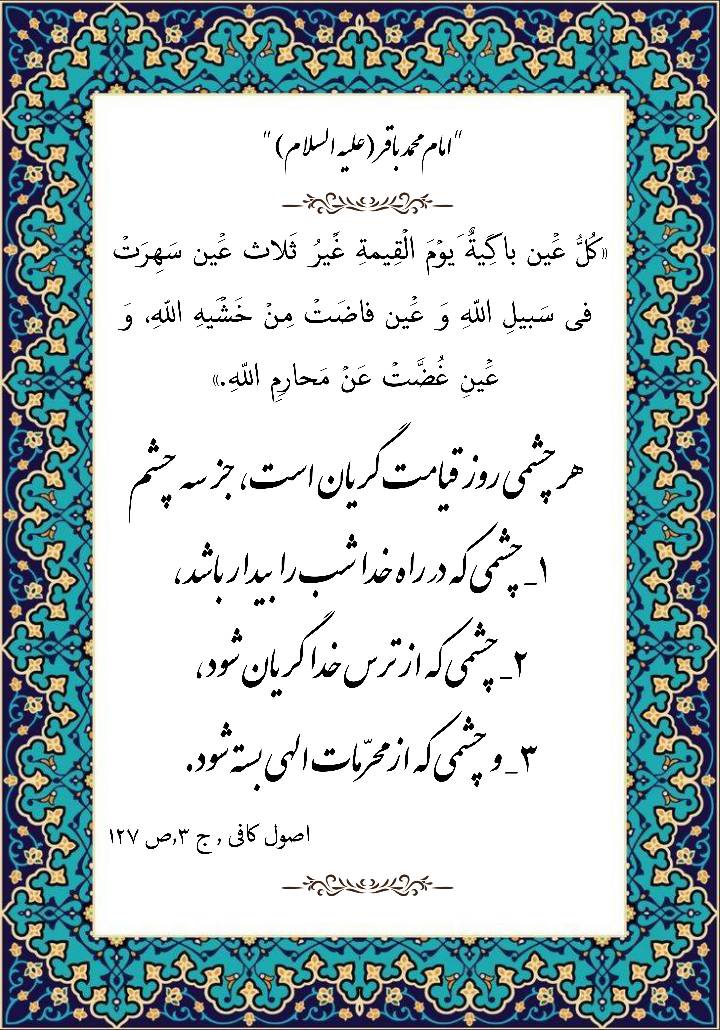 "امام محمد باقر (علیه السلام)"
«کُلُّ عَیْن باکِیةٌ یَوْمَ الْقِیمةِ غَیْرُ ثَلاث عَیْن سَهِرَتْ
فی سَبیلِ اللّهِ وَ عَیْن فاضَتْ مِنْ خَشْیَهِ اللّهِ، وَ
عَیْنِ غُضَّتْ عَنْ مَحارِمِ اللّهِ.»
هر چشمی روز قیامت گریان است، جز سه چشم
۱_ چشمی که در راه خدا شب را بیدار باشد،
۲_ چشمی که از ترس خدا گریان شود،
۳_ و چشمی که از محرّمات الهی بسته شود.
اصول کافی , ج ۳,ص ۱۲۷